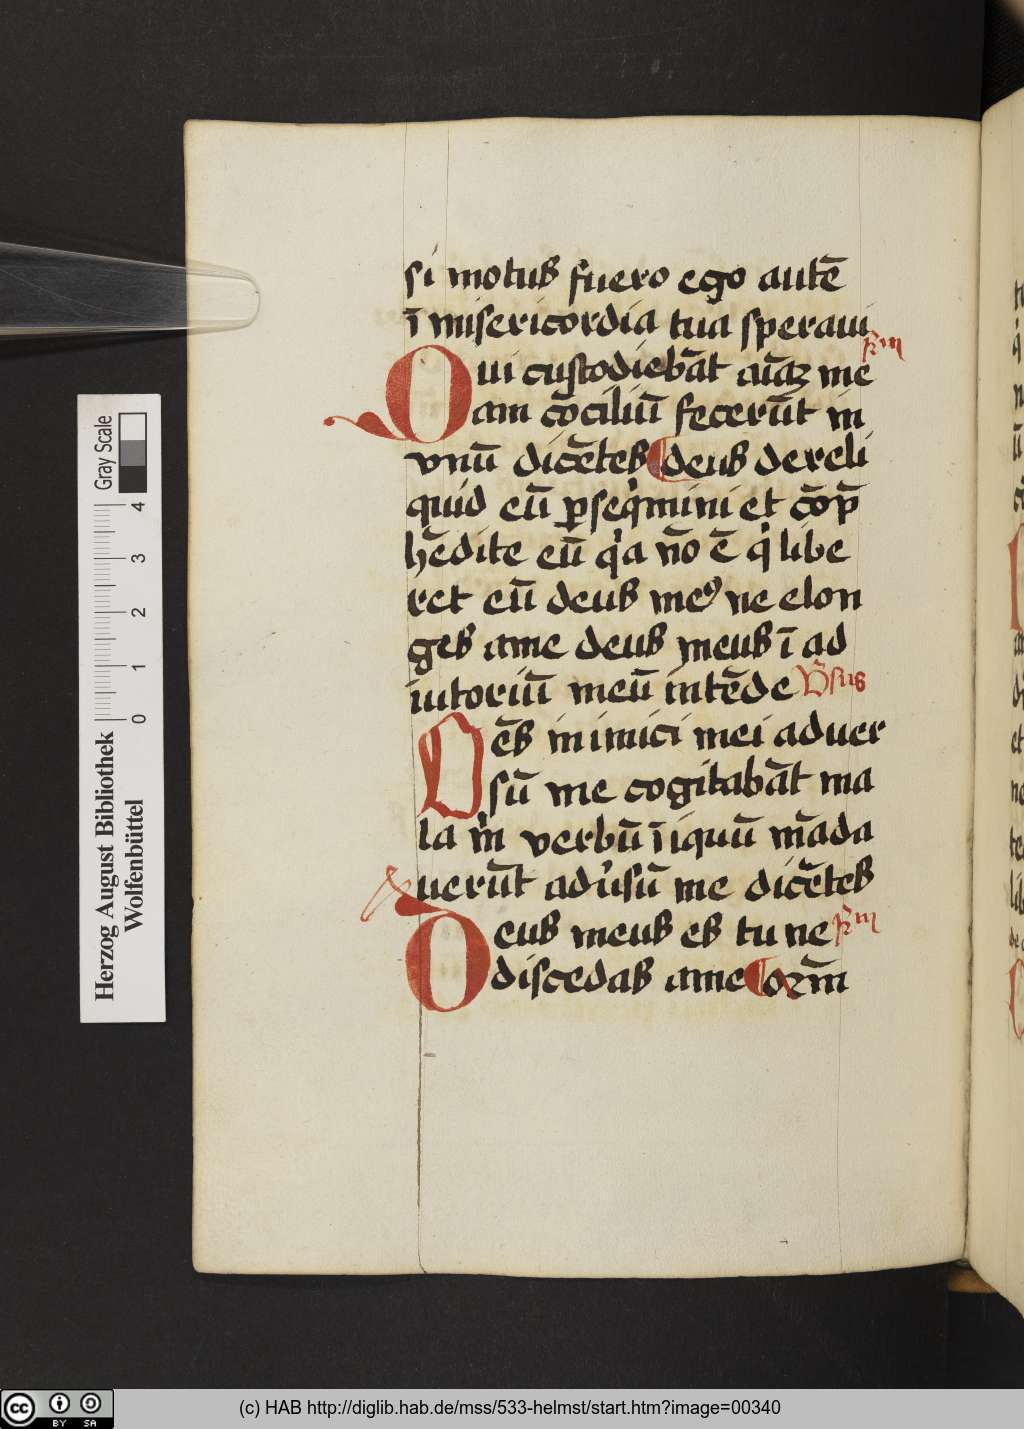 si motus fuero ego autē
ī misericordia tua speraui
R̄m
Qui custodiebāt aīaʒ me
am cōciliū fecerūt in
vnū dicētes deus dereli
quid eū ꝑseqͥmini et cōp̄
hēdite eū qͥa nō ē qͥ libe
ret eū deus meꝰ ne elon
ges ame deus meus ī ad
iutoriū meū intēde V̄sus
Oēs inimici mei aduer
sū me cogitabāt ma
la mͥ verbū īiquū māda
uerūt adūsū me dicētes
Deus meus es tu ne R̄m
discedas ame Qōʒm
Herzog August Bibliothek
Wolfenbüttel
Gray Scale
0 1 2 3 4
(c) HAB http://diglib.hab.de/mss/533-helmst/start.htm?image=00340
cc BY SA